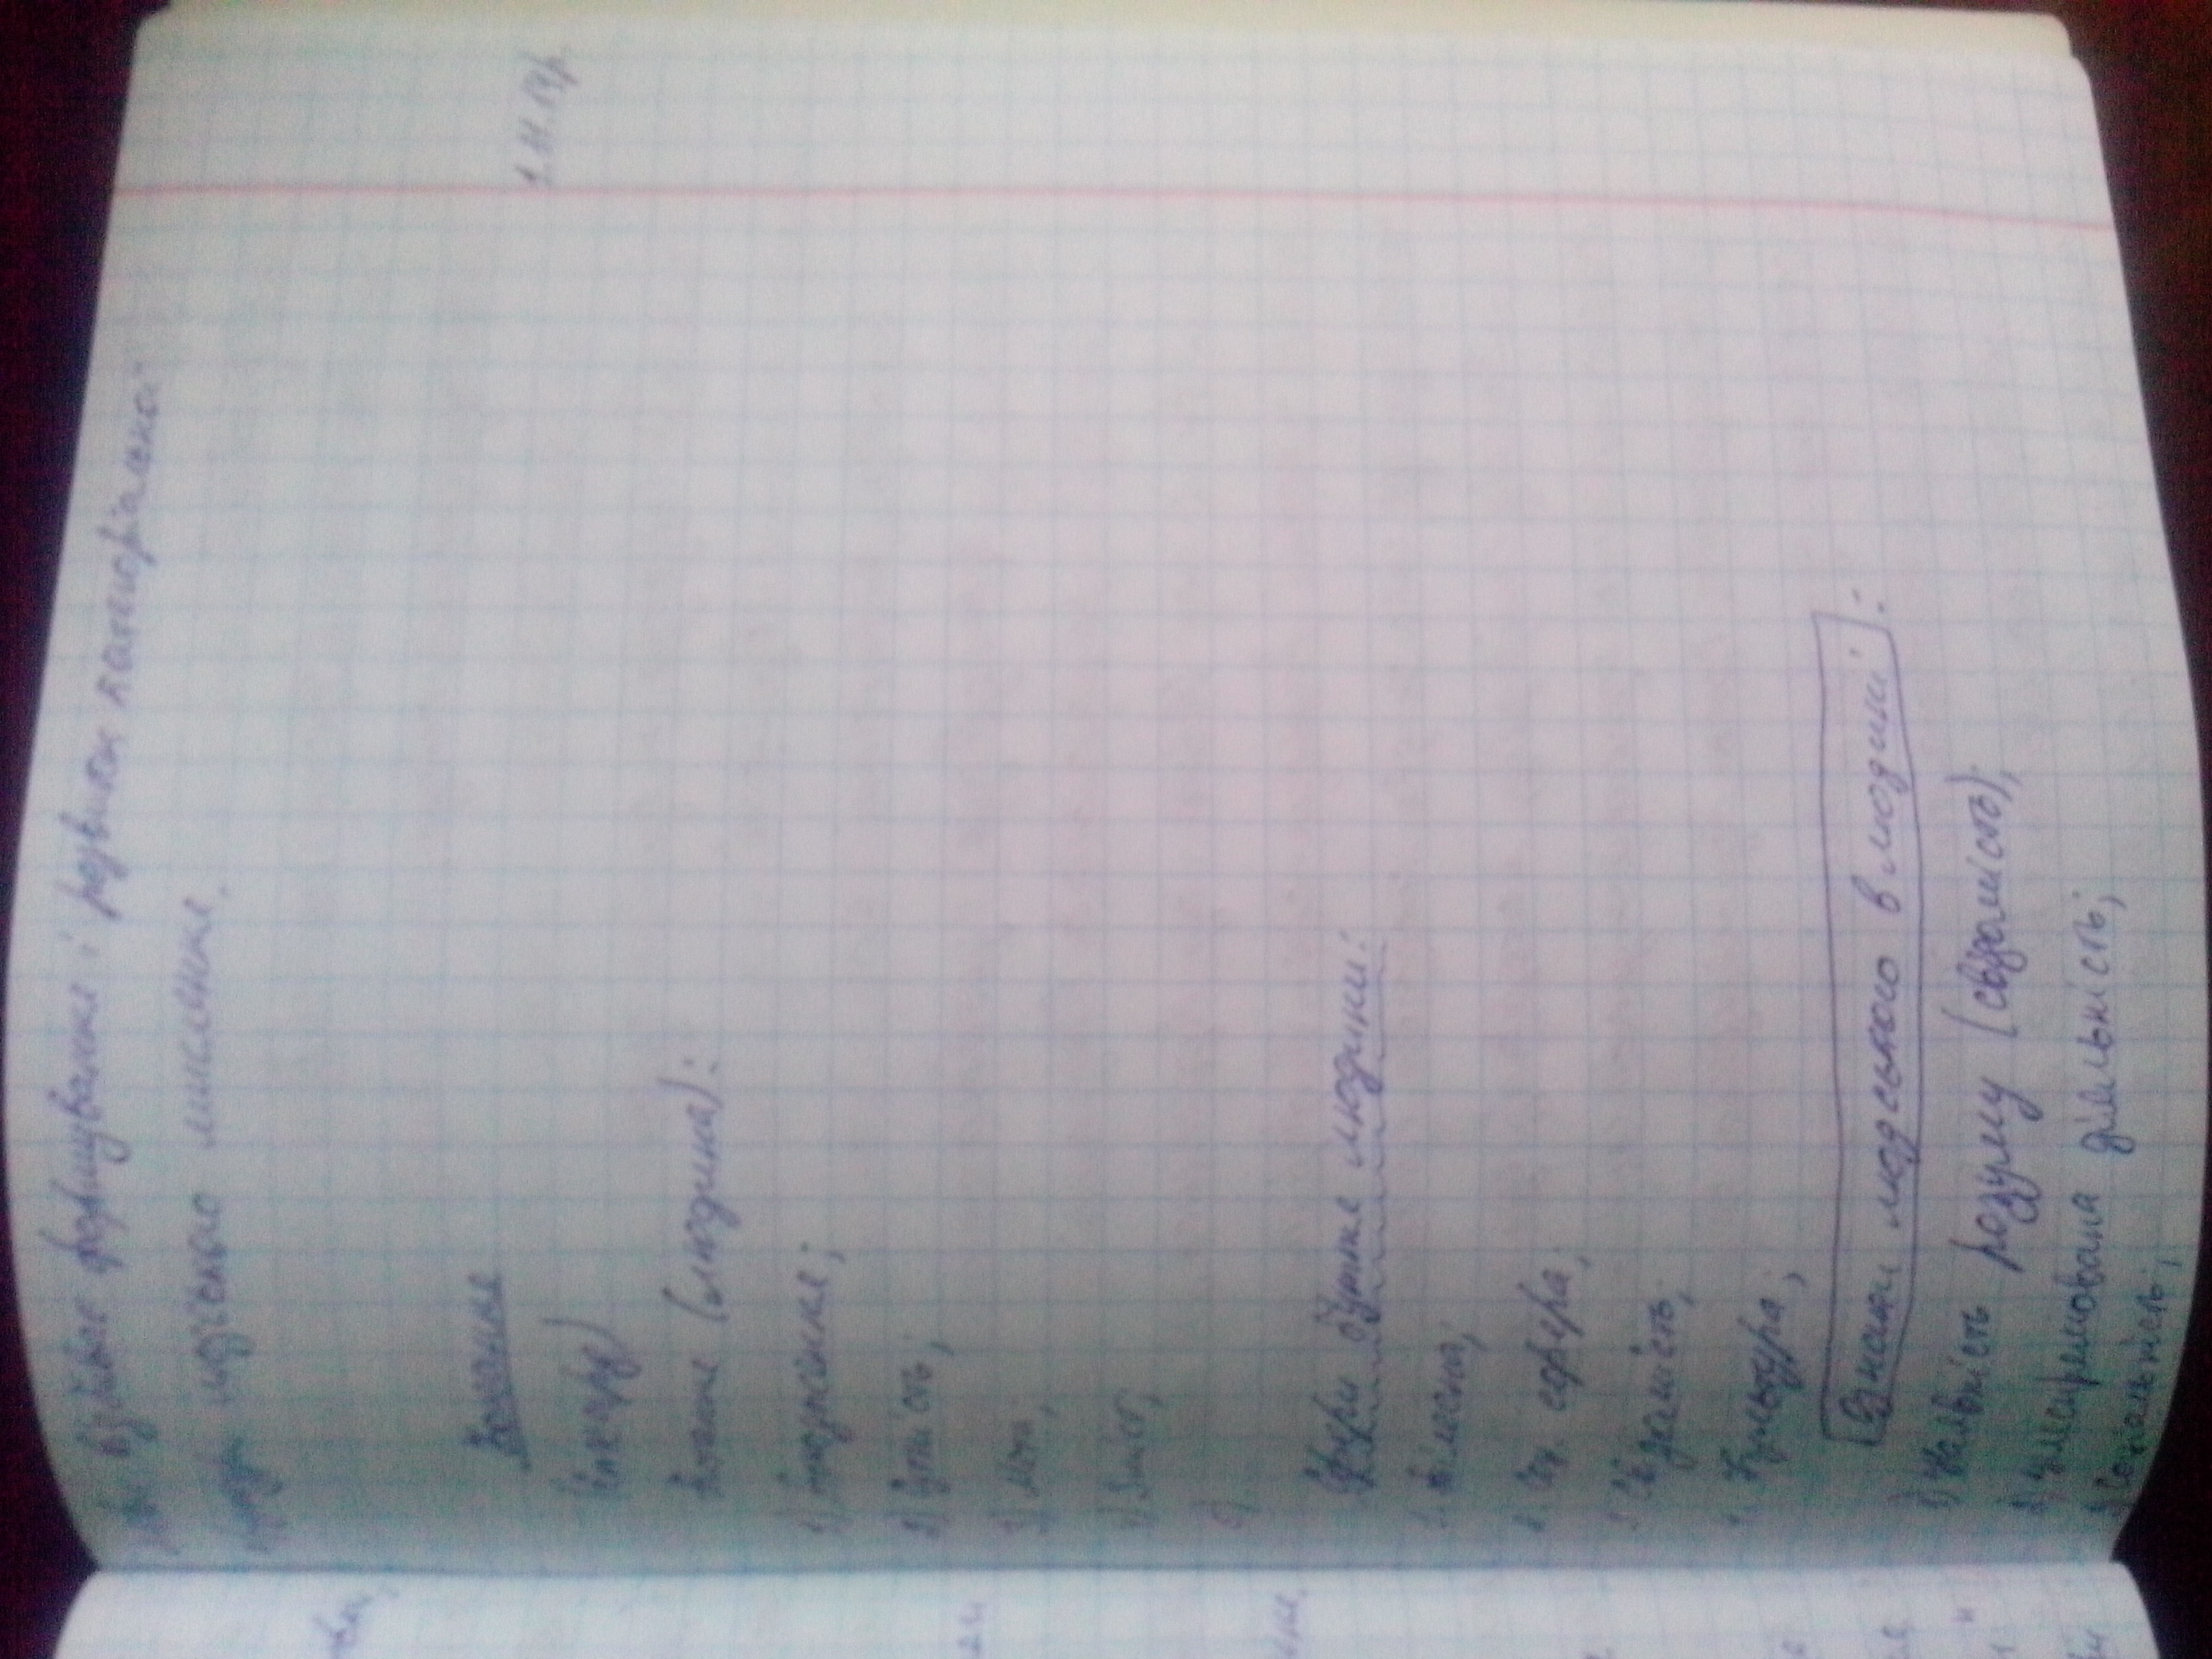 відбиває формування і розвиток категоріальної
людського мислення.
Кохання
1.11.14р.
(людина):
1) Походження;
2) Сутність;
3) Мета;
4) Зміст;
5)
Сфери буття людини:
1. Тілесна;
2. Соц. сфера;
3. Свідомість;
4. Культура;
Ознаки людського в людині:
1) Наявність розуму (свідомість);
2) Цілеспрямована діяльність;
3) Соціальність;